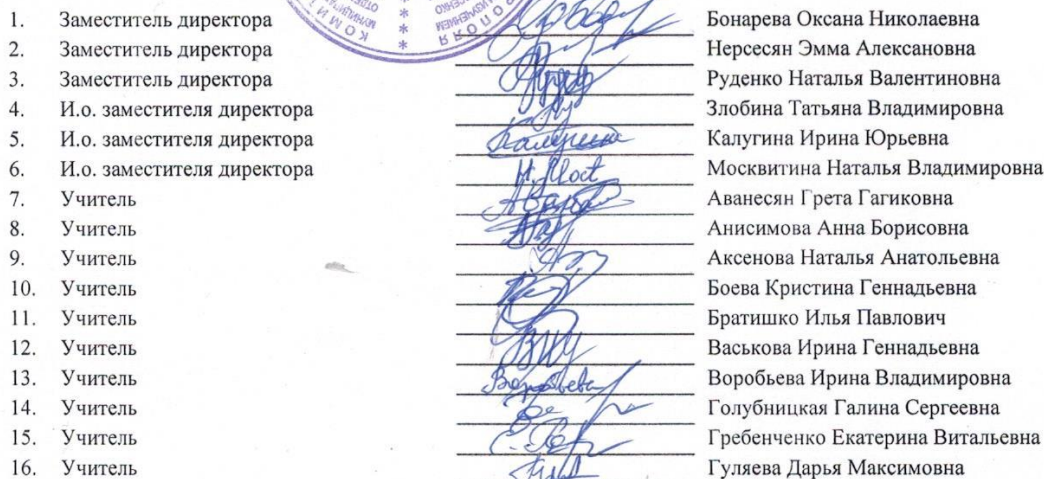 1. Заместитель директора Бонарева Оксана Николаевна
2. Заместитель директора Нерсесян Эмма Алексановна
3. Заместитель директора Руденко Наталья Валентиновна
4. И.о. заместителя директора Злобина Татьяна Владимировна
5. И.о. заместителя директора Калугина Ирина Юрьевна
6. И.о. заместителя директора Москвитина Наталья Владимировна
7. Учитель Аванесян Грета Гагиковна
8. Учитель Анисимова Анна Борисовна
9. Учитель Аксенова Наталья Анатольевна
10. Учитель Боева Кристина Геннадьевна
11. Учитель Братишко Илья Павлович
12. Учитель Васькова Ирина Геннадьевна
13. Учитель Воробьева Ирина Владимировна
14. Учитель Голубницкая Галина Сергеевна
15. Учитель Гребенченко Екатерина Витальевна
16. Учитель Гуляева Дарья Максимовна